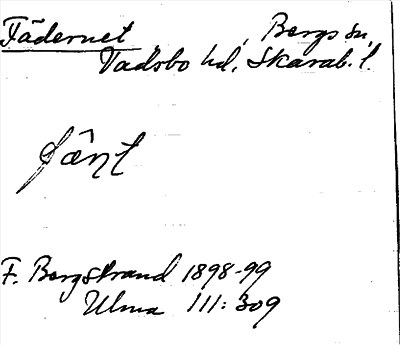 Fädernet, Bergs sn,
Vadsbo hd, Skarab. l.
fânt
F. Bergstrand 1898-99
Ulma 111:309